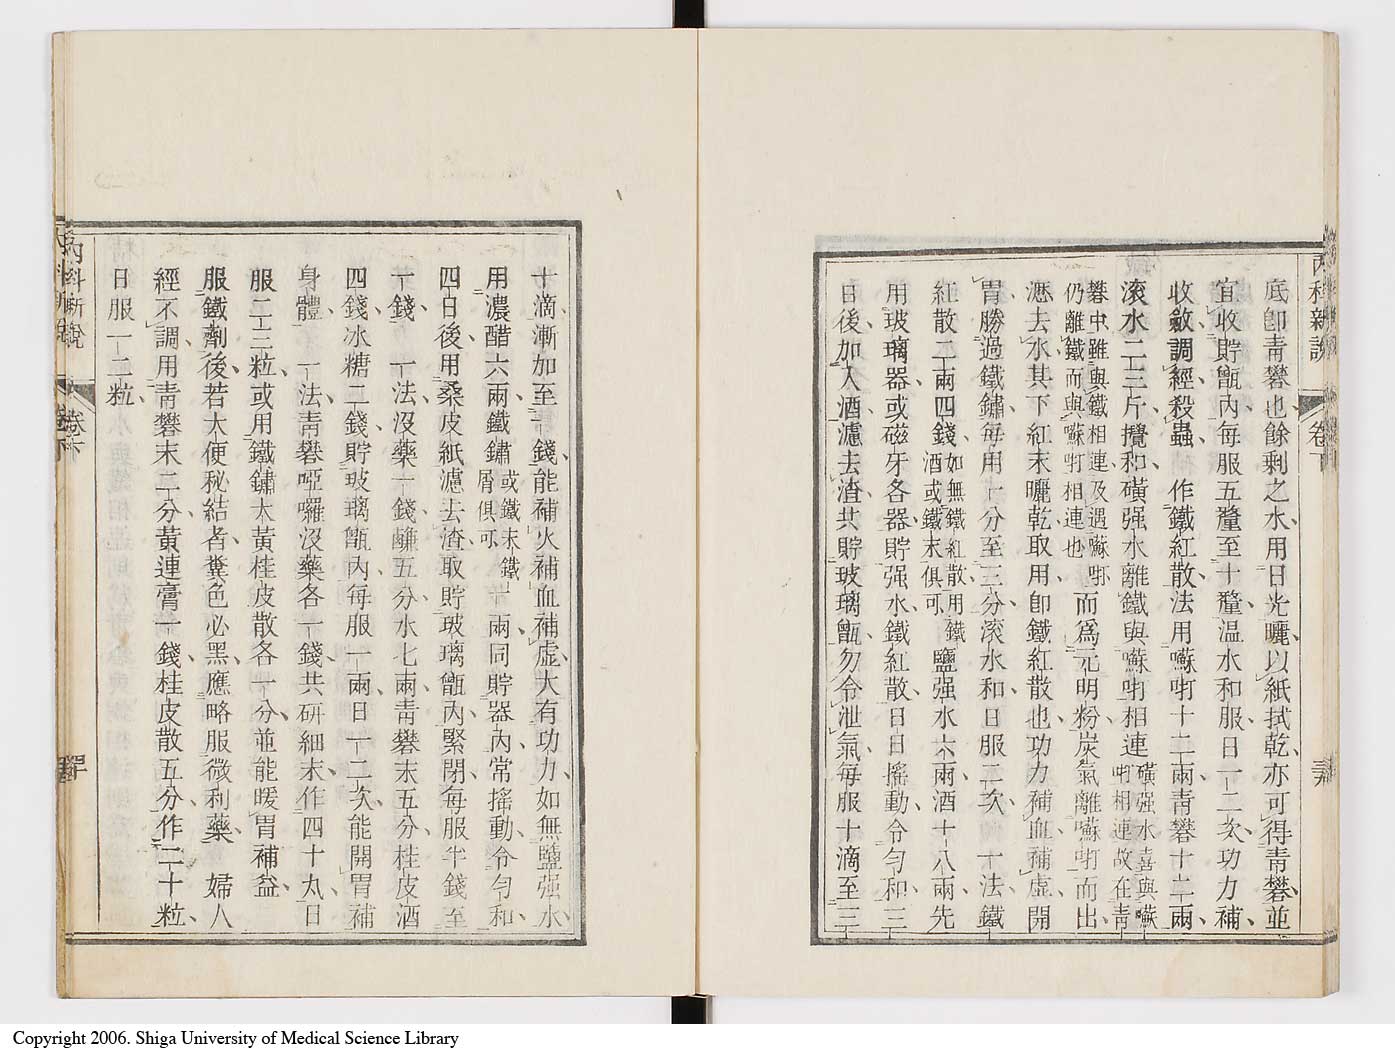 內科新說
卷下
三六
底卽青礬也餘剩之水用日光曬以紙拭乾亦可得青礬並
宜收貯甑內每服五釐至十釐温水和服日一二次功力補
收斂調經殺蟲 作鐵紅散法用囌呏十二兩青礬十二兩
滾水二三斤攪和磺强水離鐵與囌呏相連磺强水喜與囌呏相連故在青
礬中雖與鐵相連及遇囌呏仍離鐵而與囌呏相連也而爲元明粉炭氣離囌呏而出
濾去水其下紅末曬乾取用卽鐵紅散也功力補血補虛開
胃勝過鐵鏽每用一分至三分滾水和日服二次 一法鐵
紅散二兩四錢如無鐵紅散用鐵酒或鐵末俱可鹽强水六兩酒十八兩先
用玻璃器或磁牙各器貯强水鐵紅散日日搖動令勻和三
日後加入酒濾去渣共貯玻璃甑勿令泄氣每服十滴至三
十滴漸加至一錢能補火補血補虛大有功力如無鹽强水
用濃醋六兩鐵鏽或鐵末鐵屑俱可一兩同貯器內常搖動令勻和
四日後用桑皮紙濾去渣取貯玻璃甑內緊閉每服半錢至
一錢 一法沒藥一錢鹻五分水七兩青礬末五分桂皮酒
四錢冰糖二錢貯玻璃甑內每服一兩日一二次能開胃補
身體 一法青礬啞囉沒藥各一錢共研細末作四十丸日
服二三粒或用鐵鏽大黃桂皮散各一分並能暖胃補益
服鐵劑後若大便秘結者糞色必黑應略服微利藥 婦人
經不調用青礬末二分黃連膏一錢桂皮散五分作二十粒
日服一二粒
內科新說
卷下
Copyright 2006. Shiga University of Medical Science Library